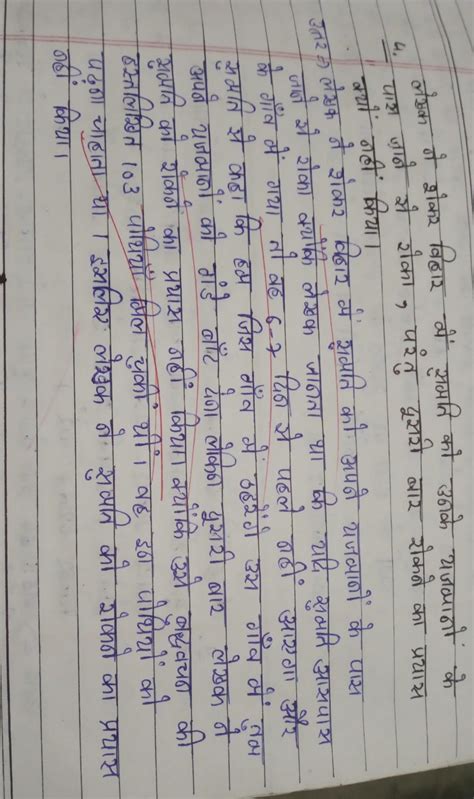 4. लेखक ने शेकर विहार में सुमति को उनके यजमानों के
पास जाने से रोका, परंतु दूसरी बार रोकने का प्रयास
क्यों नहीं किया।
उत्तर लेखक ने शेकर विहार में सुमति को अपने यजमानों के पास
जाने से रोका क्योंकि लेखक जानता था कि यदि सुमति आसपास
के गाँव में गया तो वह 6-7 दिन से पहले नहीं आएगा और
सुमति से कहा कि हम जिस गाँव में ठहरेंगे उस गाँव में तुम
अपने यजमानों को गंडे बाँट देना लेकिन दूसरी बार लेखक ने
सुमति को रोकने का प्रयास नहीं किया। क्योंकि उसे बुद्धवचन की
हस्तलिखित 103 पोथियाँ मिल चुकी थीं। वह इन पोथियों को
पढ़ना चाहता था। इसलिए लेखक ने सुमति को रोकने का प्रयास
नहीं किया।